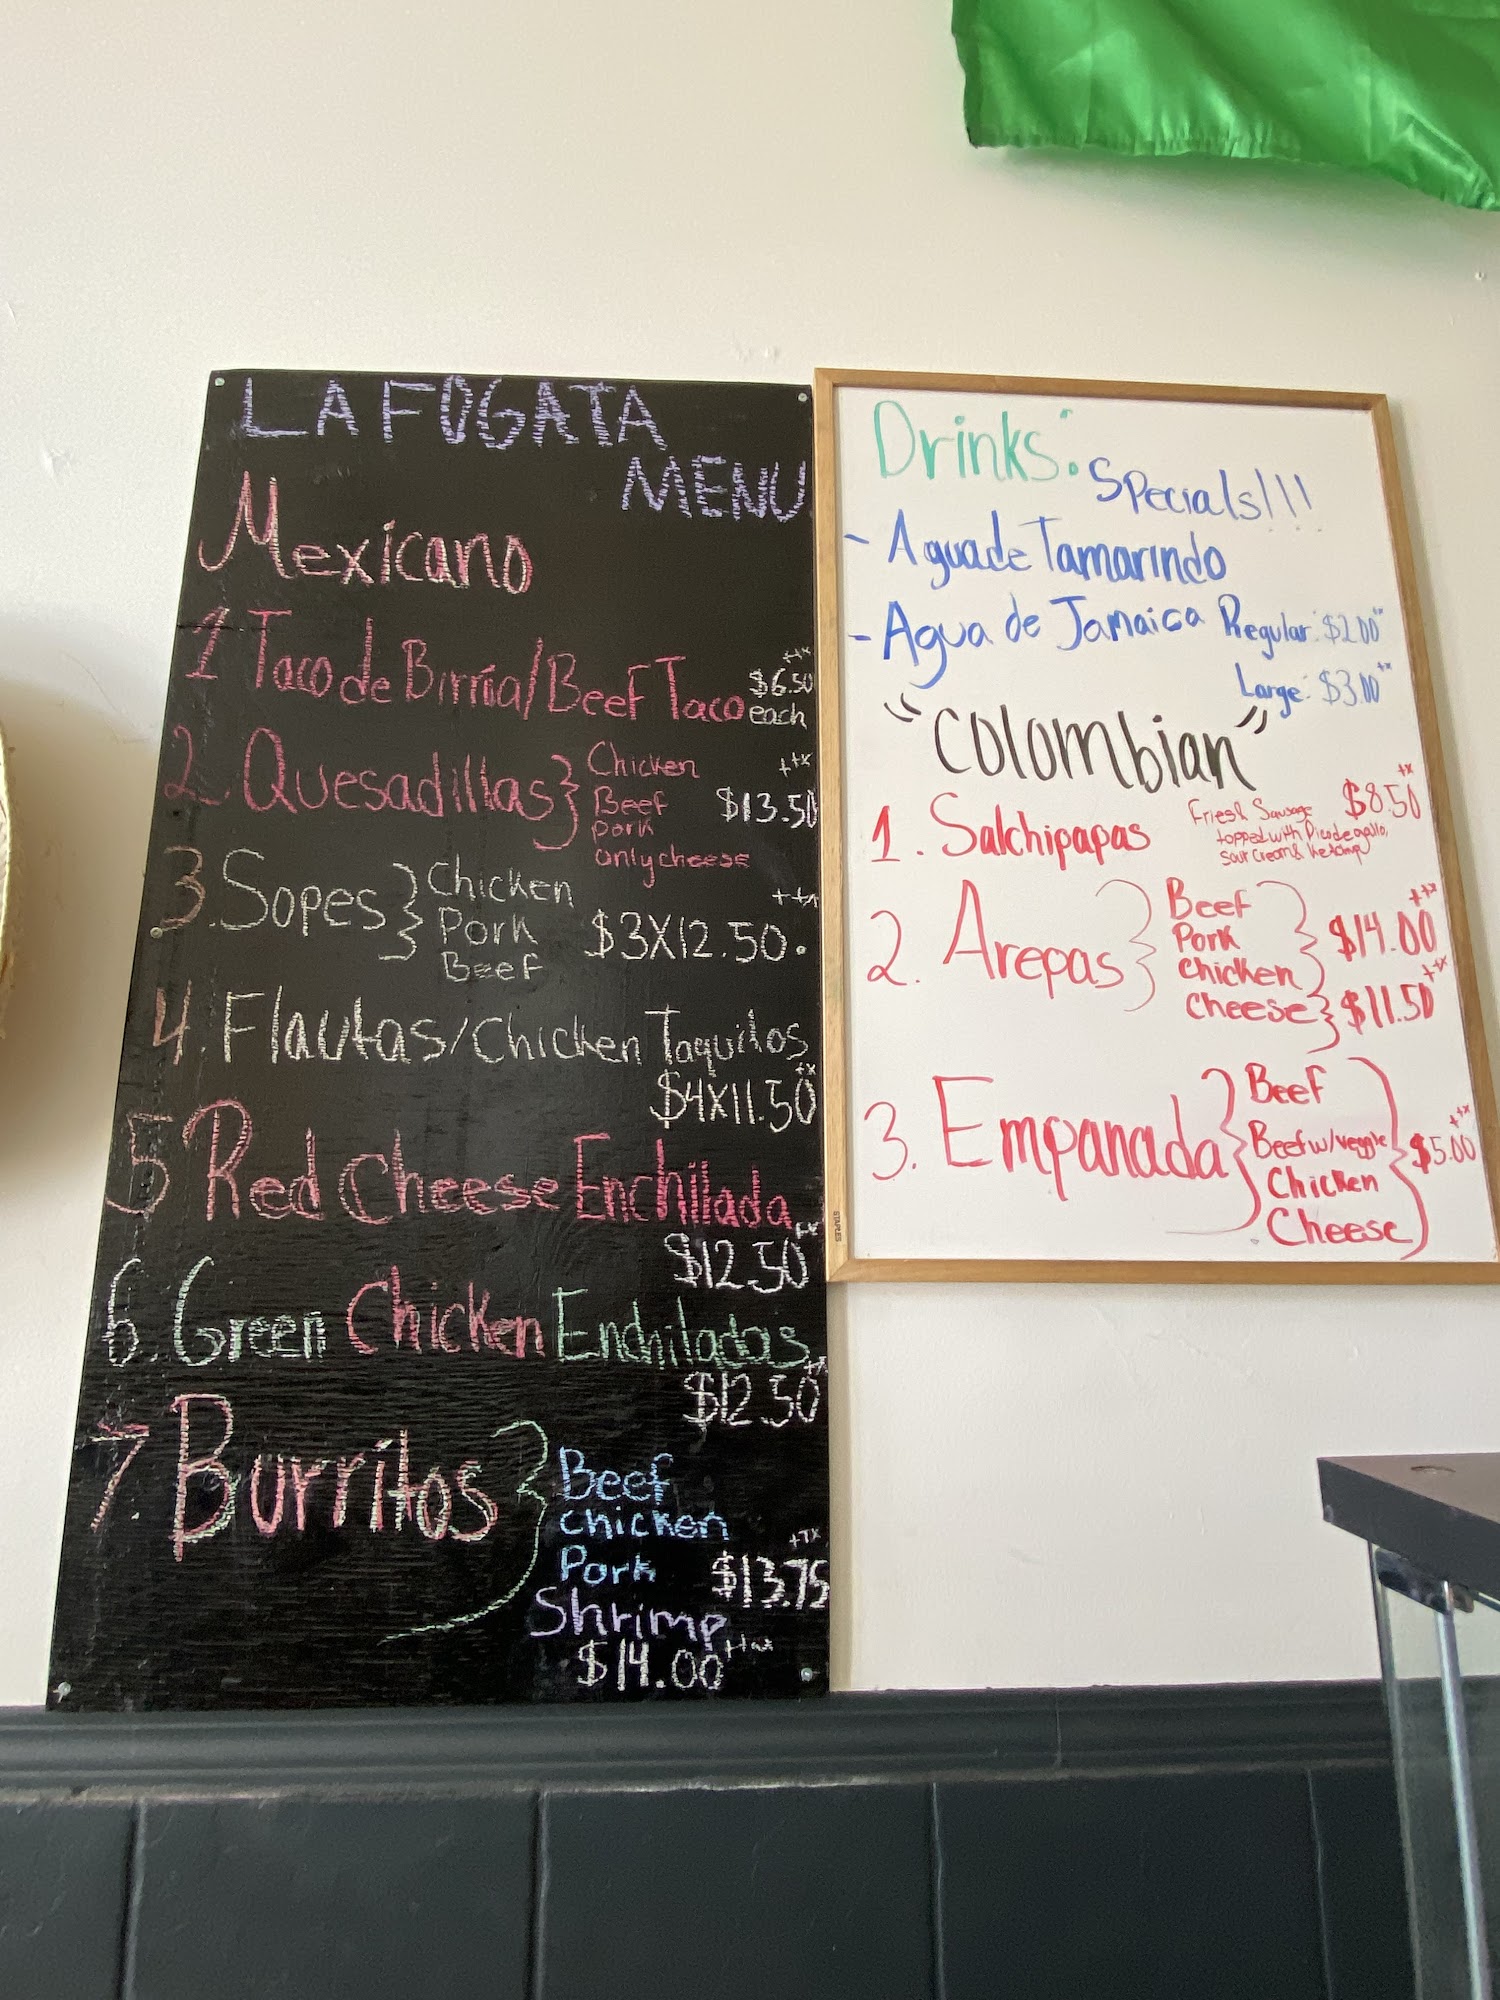 LA FOGATA
MENU
Mexicano
1 Taco de Birria/Beef Taco $6.50 +tx
each
2. Quesadillas } Chicken
Beef
pork
only cheese
$13.50 +tx
3. Sopes } Chicken
Pork
Beef
$3X12.50. +tx
4. Flautas/Chicken Taquitos
$4X11.50 +tx
5 Red Cheese Enchilada
$12.50 +tx
6. Green Chicken Enchiladas
$12.50 +tx
7. Burritos } Beef
chicken
Pork
$13.75 +TX
Shrimp
$14.00 +tax
Drinks:
Specials!!!
- Agua de Tamarindo
- Agua de Jamaica Regular: $2.00 +tx
Large: $3.00 +tx
"Colombian"
1. Salchipapas
Fries& Sausage
topped with Pico de gallo,
sour cream& Ketchup
$8.50 +tx
2. Arepas } Beef
Pork
chicken
} $14.00 +tx
cheese } $11.50 +tx
3. Empanada } Beef
Beef w/veggie
Chicken
Cheese
} $5.00 +tx
STAPLES